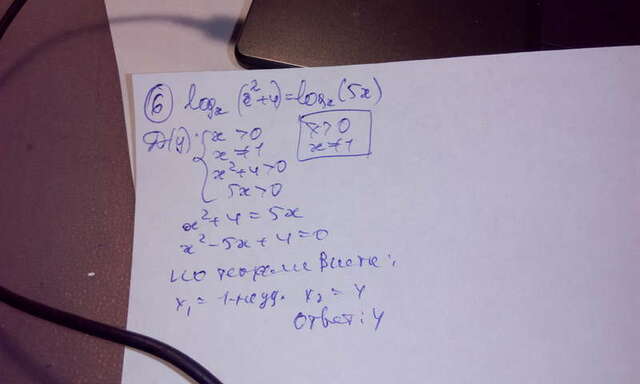 ⑥ logₓ(x²+4)=logₓ(5x)
D(y): { x>0
x≠1
x²+4>0
5x>0
x>0
x≠1
x²+4=5x
x²-5x+4=0
по теореме Виета:
x₁=1-не уд. x₂=4
Ответ: 4